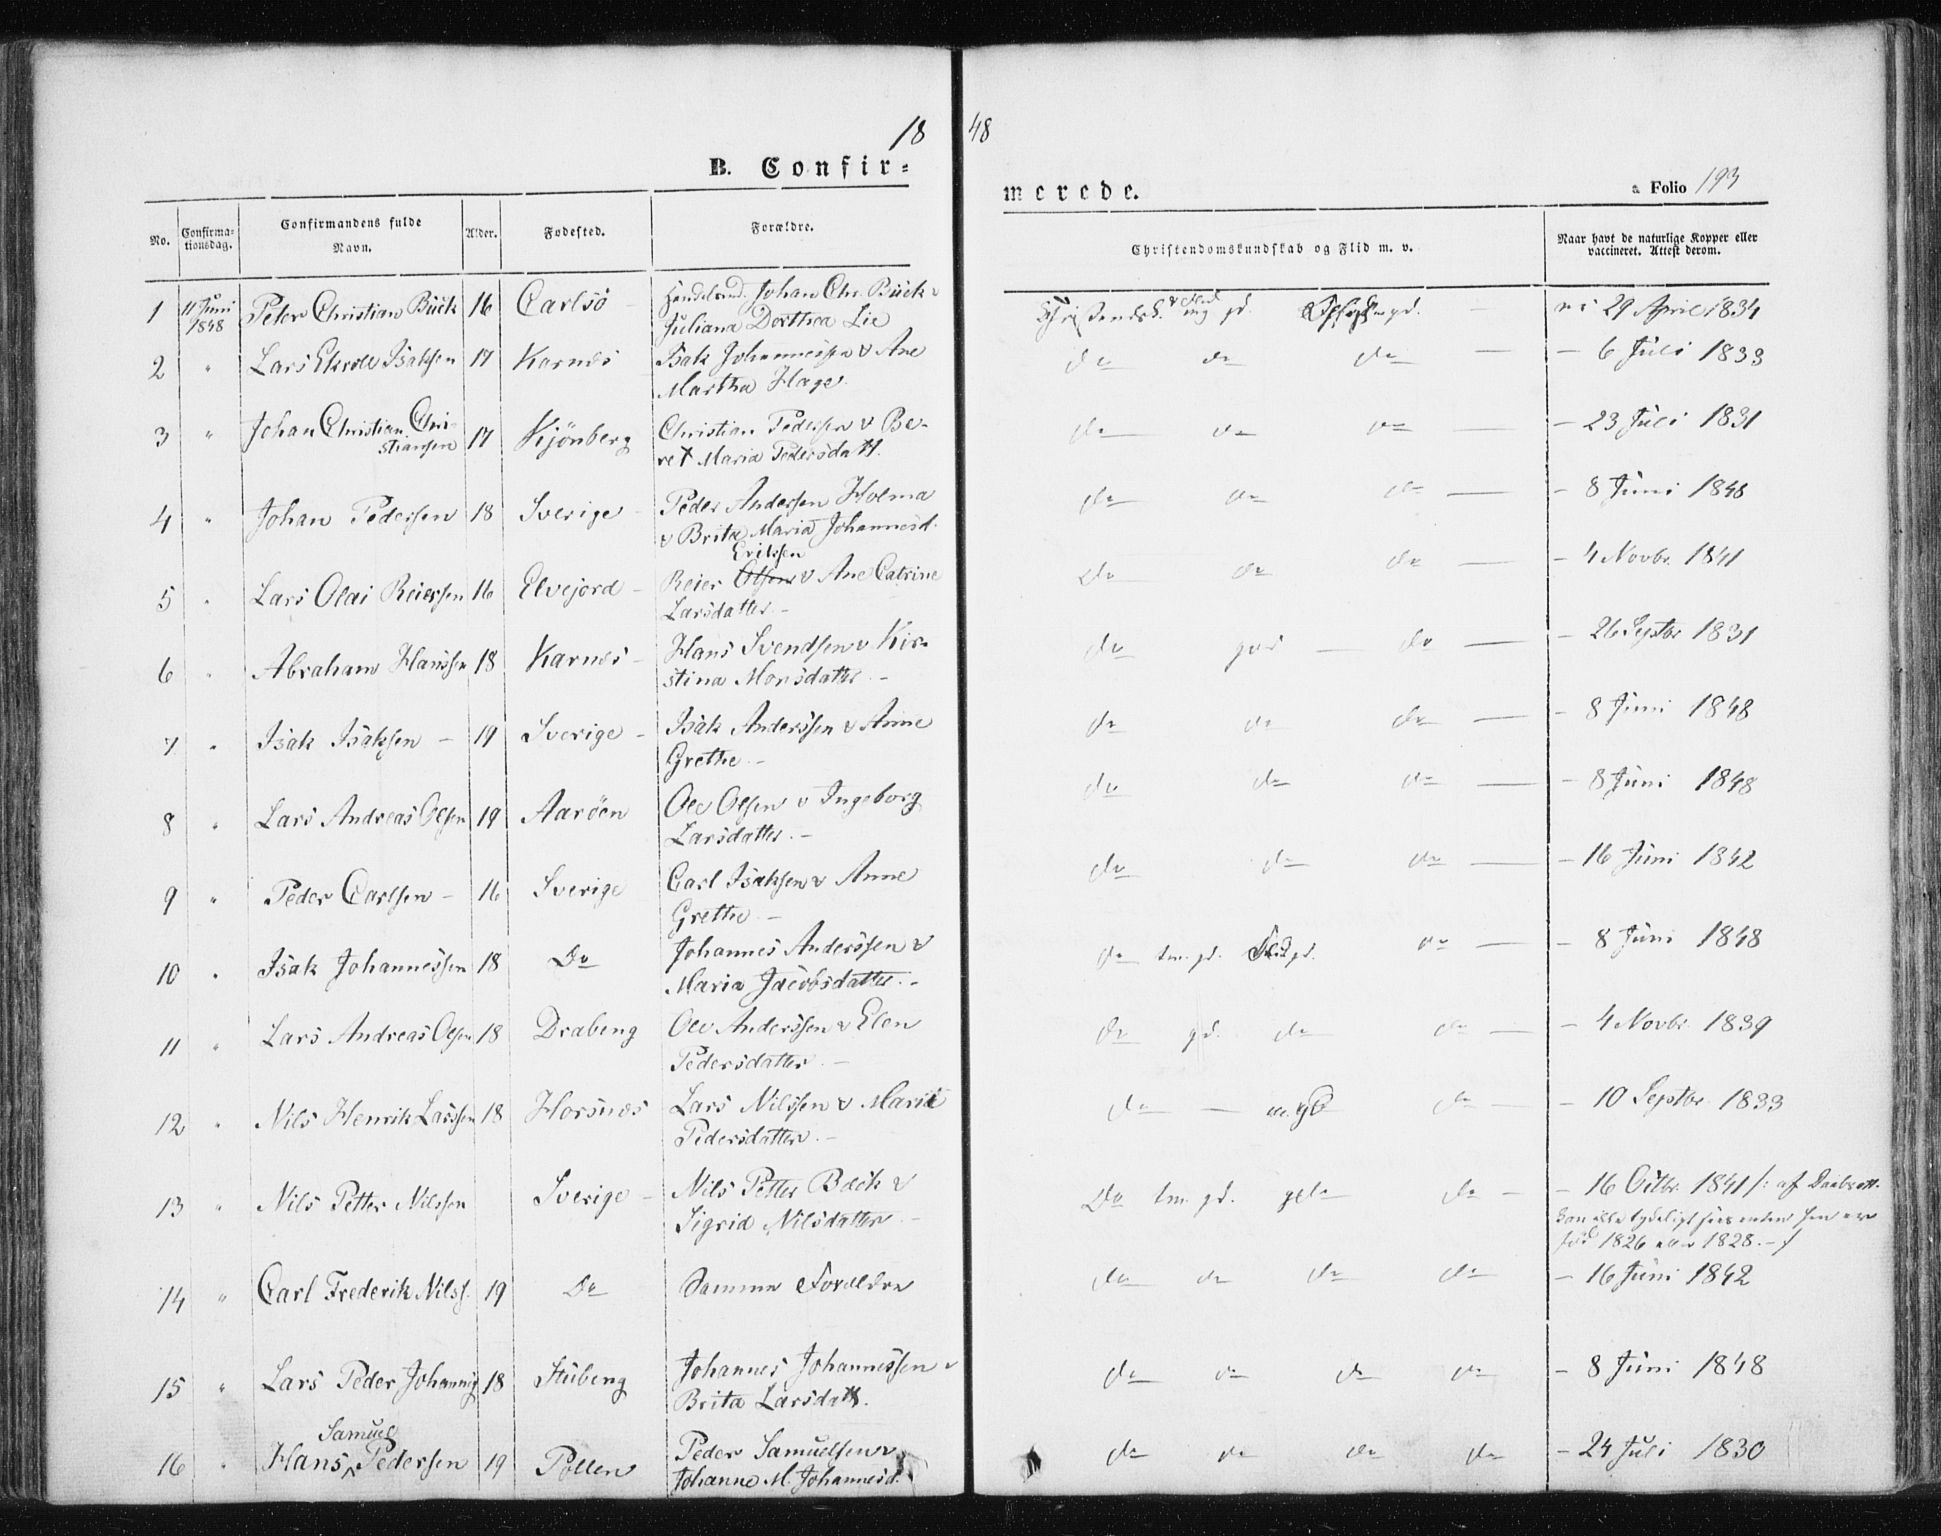 18 48
B. Confir-
merede.
Folio 193
No.
Confirma-
tionsdag.
Confirmandens fulde
Navn.
Alder.
Fødested.
Forældre.
Christendomskundskab og Flid m. v.
Naar havt de naturlige Kopper eller
vaccineret. Attest derom.
1 11 Juni 1848 Peter Christian Bück 16 Carlsö Johan Chr. Bück &
Juliana Dorthea Lie 29 April 1834
2 " Lars Isaksen 17 Karnes Isak Johannessen & Ane
Martha Hage. do do do — — 6 Juli 1833
3 " Johan Christian Chri-
stiansen 17 Kjönberg Christian Pedersen & Be-
ret Maria Pedersdatt. do do do — — 23 Juli 1831
4 " Johan Pedersen 18 Sverige Peder Andersen Holma
& Brita Maria Johannesd. do do do — — 8 Juni 1848
5 " Lars Olai Reiersen 16 Elvejord — Reier Olsen Erikssen & Ane Catrine
Larsdatter — Do do do — — 4 Novbr. 1841
6 " Abraham Hanssen 18 Karnes — Hans Svendsen & Kir-
stina Monsdatter — do god — do — — 26 Septbr 1831
7 " Isak Isaksen — 19 Sverige — Isak Anderssen & Anne
Grethe — do do do — — 8 Juni 1848
8 " Lars Andreas Olsen 19 Aaröen Ole Olsen & Ingeborg
Larsdatter. — do do do — — 8 Juni 1848
9 " Peder Carlsen — 16 Sverige Carl Isaksen & Anne
Grethe — do do do — — 16 Juni 1842
10 " Isak Johannessen 18 Do Johannes Anderssen &
Maria Jacobsdatter. — do tm. gd. Flid gd. do — — 8 Juni 1848
11 " Lars Andreas Olsen 18 Drabeng Ole Anderssen & Elen
Pedersdatter — do gd. do do — — 4 Novbr. 1839
12 " Nils Henrik Larssen 18 Horsnes Lars Nilssen & Marit
Pedersdatter. — do — do — — 10 Septbr. 1833
13 " Nils Petter Nilssen Sverige — Nils Petter Bäck &
Sigrid Nilsdatter — Do tm. gd. do — — 16 Octbr. 1841 /: af Daabsatt.
kan ikke tydeligt sees enten han er
född 1826 eller 1828. — /
14 " Carl Frederik Nilss. 19 Do Samme Forældre do do do do — 16 Juni 1842
15 " Lars Peder 18 Stubeng Johannes Johannessen &
Brita Larsdatt. do do do do — 8 Juni 1848
16 " Hans Samuel Pedersen 19 Pollen Peder Samuelsen &
Johanne M. Johannesd. do do do do — 24 Juli 1830